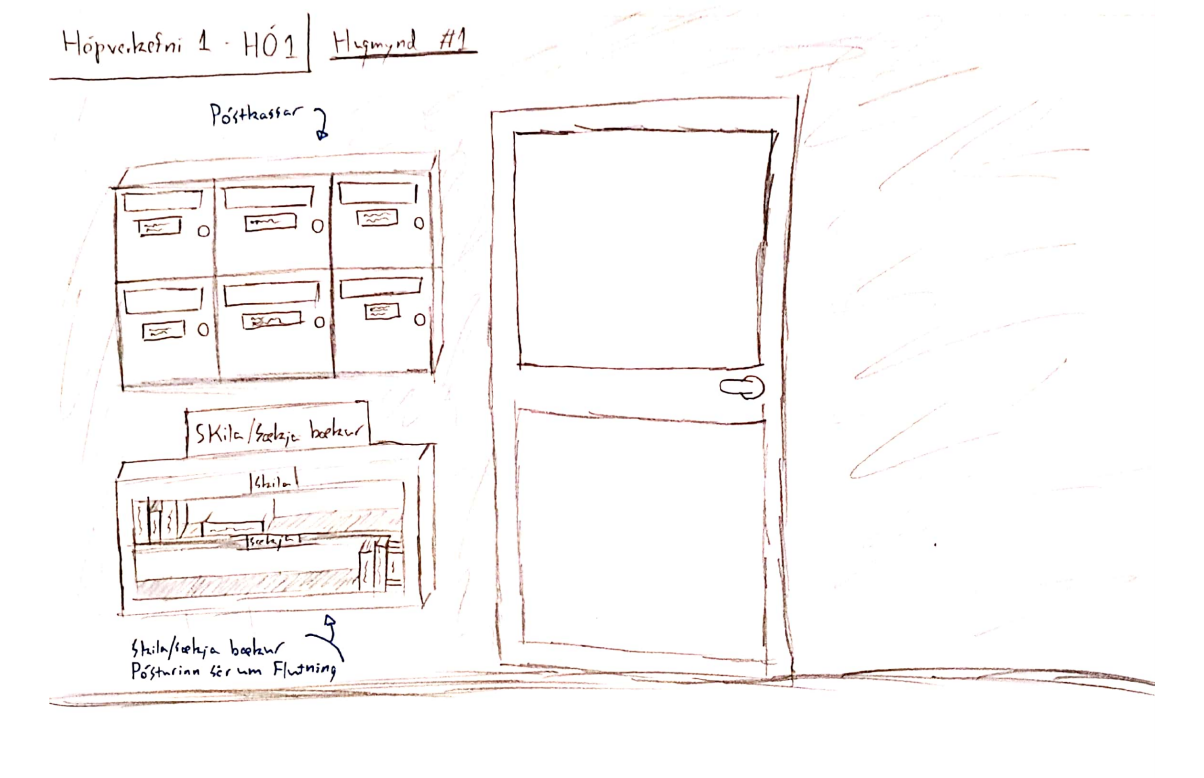 Hópverkefni 1 - HÓ1
Hugmynd #1
Póstkassar
Skila/sækja bækur
Skila
Sækja
Skila/sækja bækur
Pósturinn sér um Flutning